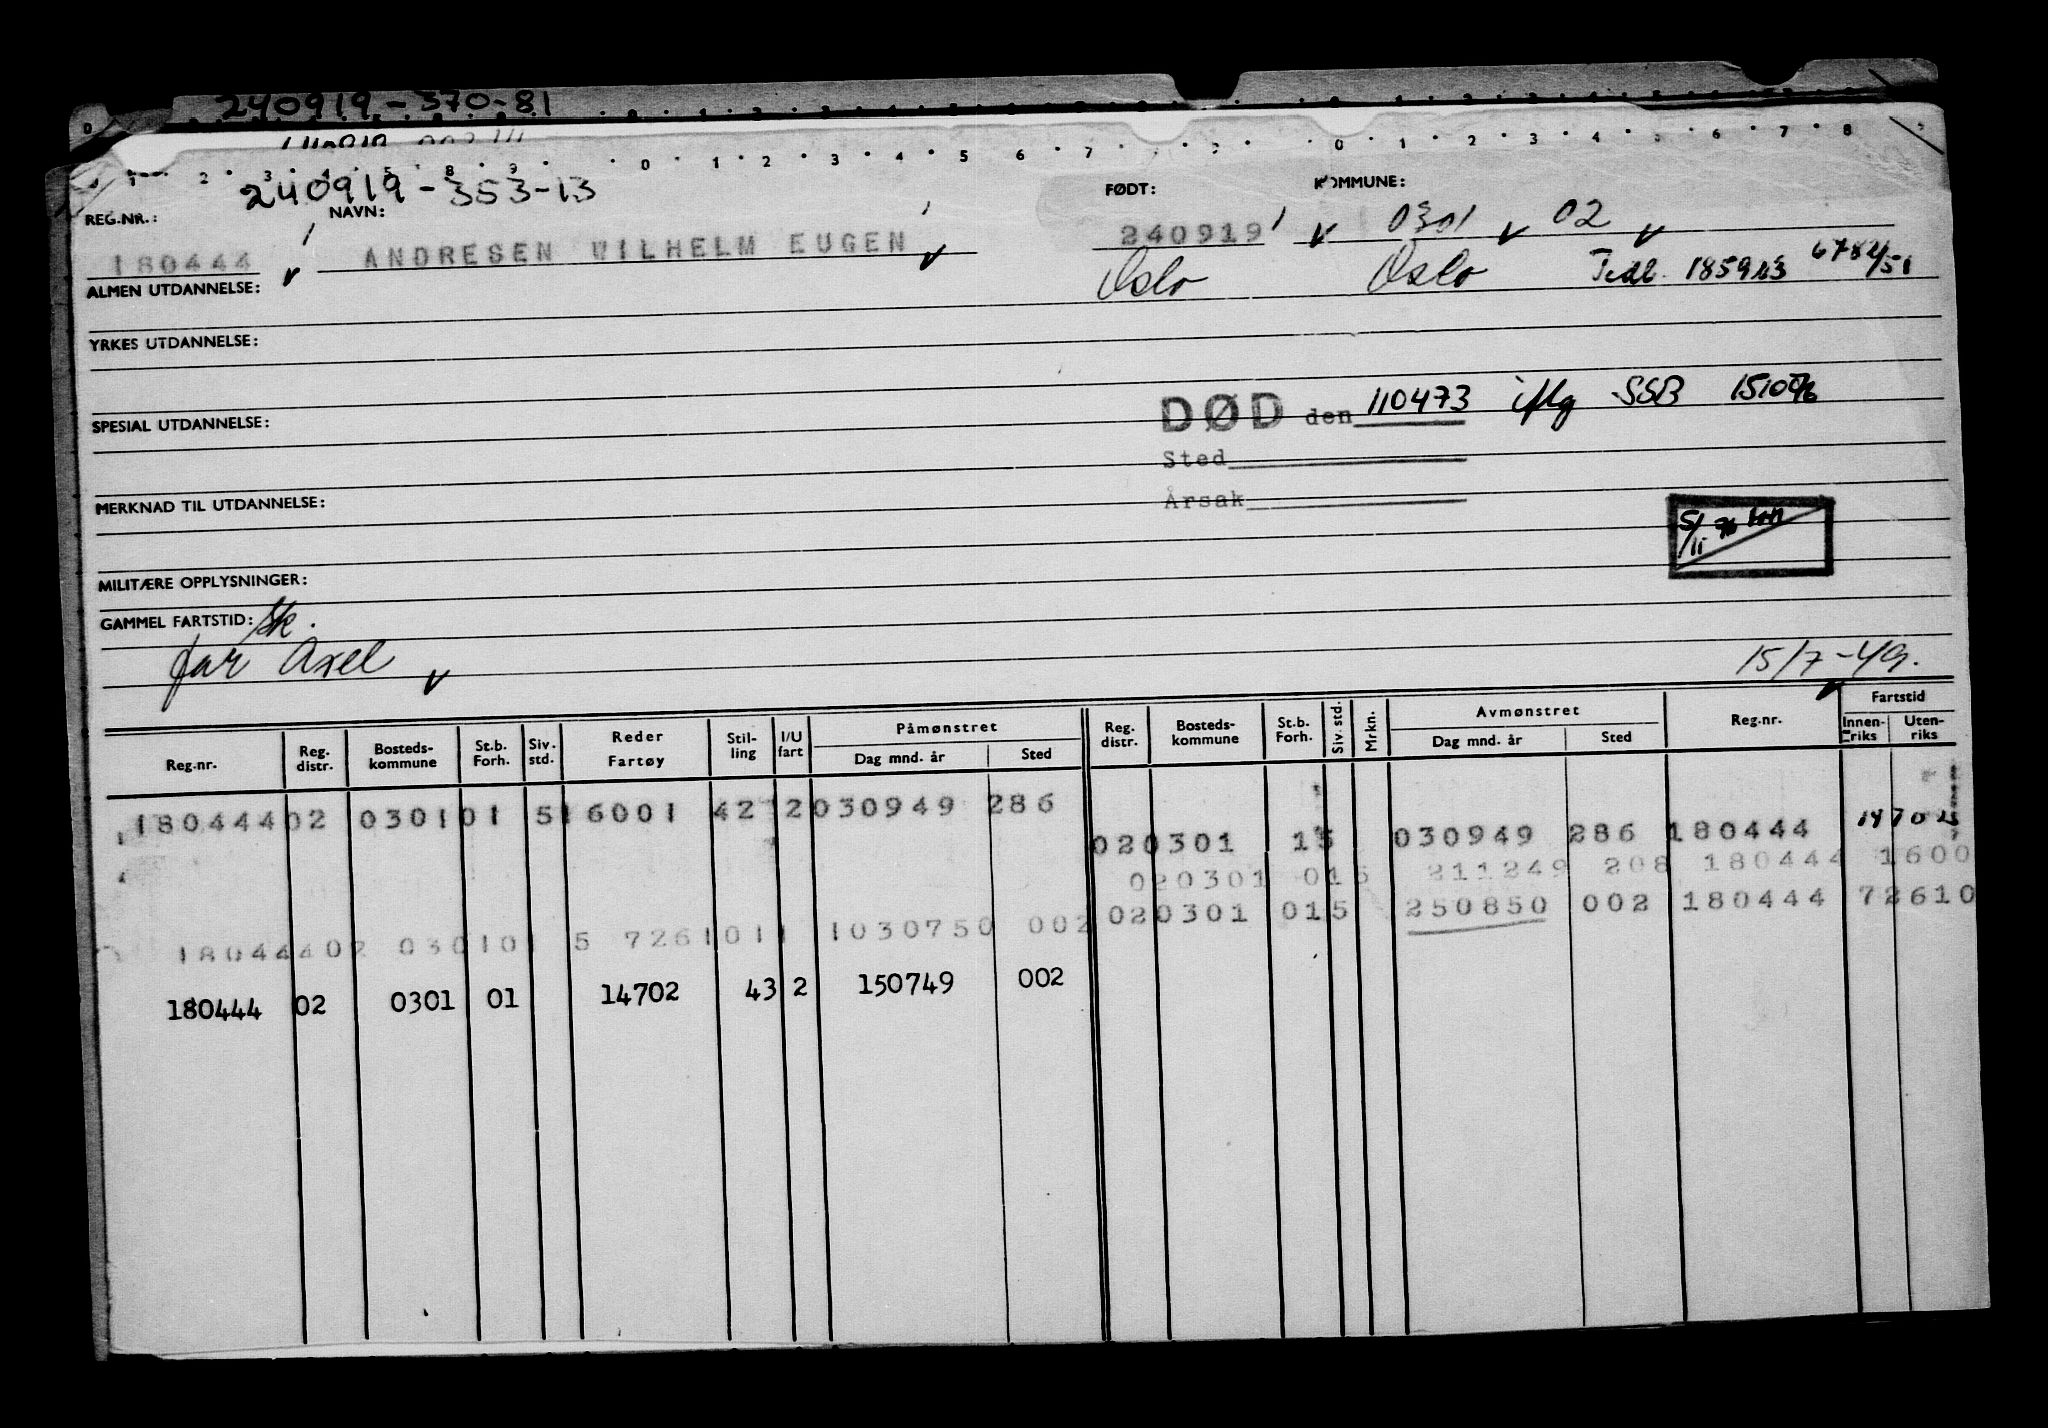 240919-370-81
0 1 2 3 4 5 6 7 8
240919-353-13
REG.NR.: NAVN: FØDT: KOMMUNE:
180444 ANDRESEN WILHELM EUGEN 240919 0301 02
ALMEN UTDANNELSE: Oslo Oslo
YRKES UTDANNELSE:
DØD den 110473 iflg SSB
SPESIAL UTDANNELSE:
Sted
MERKNAD TIL UTDANNELSE:
Årsak
MILITÆRE OPPLYSNINGER:
GAMMEL FARTSTID:
far Axel 15/7-49.
Reg.nr. Reg. distr. Bosteds-kommune St.b. Forh. Siv. std. Reder Fartøy Stil-ling I/U fart Påmønstret Dag mnd. år Sted Reg. distr. Bosteds-kommune St.b. Forh. Siv. std. Mrkn. Avmønstret Dag mnd. år Sted Reg.nr. Fartstid Innen-riks Uten-riks
180444 02 0301 01 5 16001 42 2 030949 286
02 0301 1 5 030949 286 180444 14702
020301 015 211249 208 180444 1600
02 0301 01 5 250850 002 180444 72610
180444 02 0301 01 5 7261011 1030750 002
180444 02 0301 01 14702 43 2 150749 002